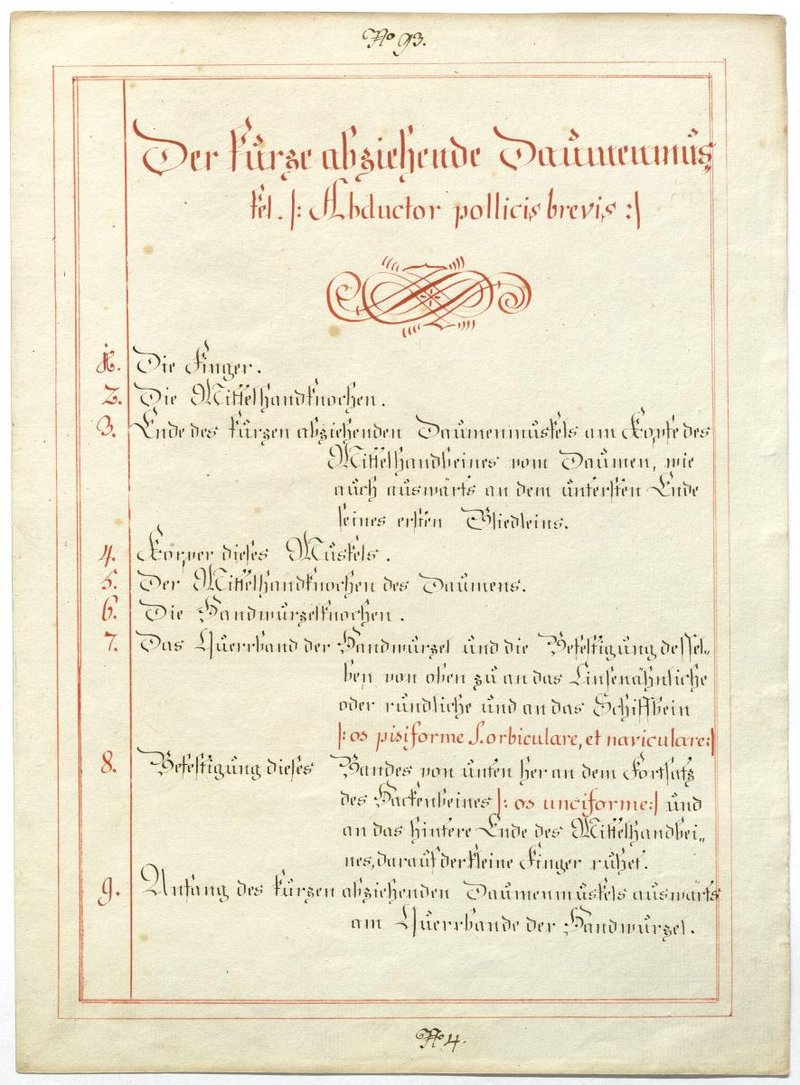 No 93.
Der kurze abziehende Daumenmus„
kel. |: Abductor pollicis brevis :|
1. Die Finger.
2. Die Mittelhandknochen.
3. Ende des kurzen abziehenden Daumenmuskels am Kopfe des
Mittelhandbeines vom Daumen, wie
auch auswärts an dem untersten Ende
seines ersten Gliedleins.
4. Körper dieses Muskels.
5. Der Mittelhandknochen des Daumens.
6. Die Handwurzelknochen.
7. Das Querrband der Handwurzel und die Befestigung dessel„
ben von oben zu an das Linsenähnliche
oder rundliche und an das Schiffbein
|: os pisiforme s. orbiculare, et naviculare:|
8. Befestigung dieses Bandes von unten her an dem Fortsatz
des Hackenbeines |: os unciforme:| und
an das hintere Ende des Mittelhandbei„
nes, darauf der kleine Finger ruhet.
9. Anfang des kurzen abziehenden Daumenmuskels auswärts
am Querrbande der Handwurzel.
No 4.